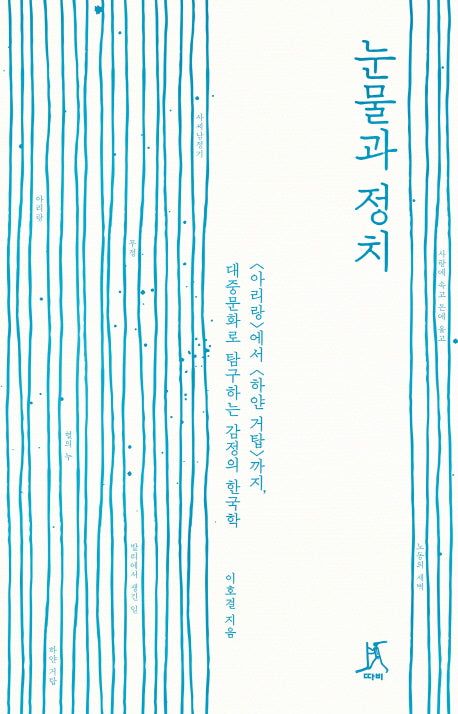 눈물과 정치
〈아리랑〉에서 〈하얀 거탑〉까지,
대중문화로 탐구하는 감정의 한국학
이호걸 지음
따비
사랑에 속고 돈에 울고
노동의 새벽
사씨남정기
무정
발리에서 생긴 일
혈의 누
하얀 거탑
아리랑